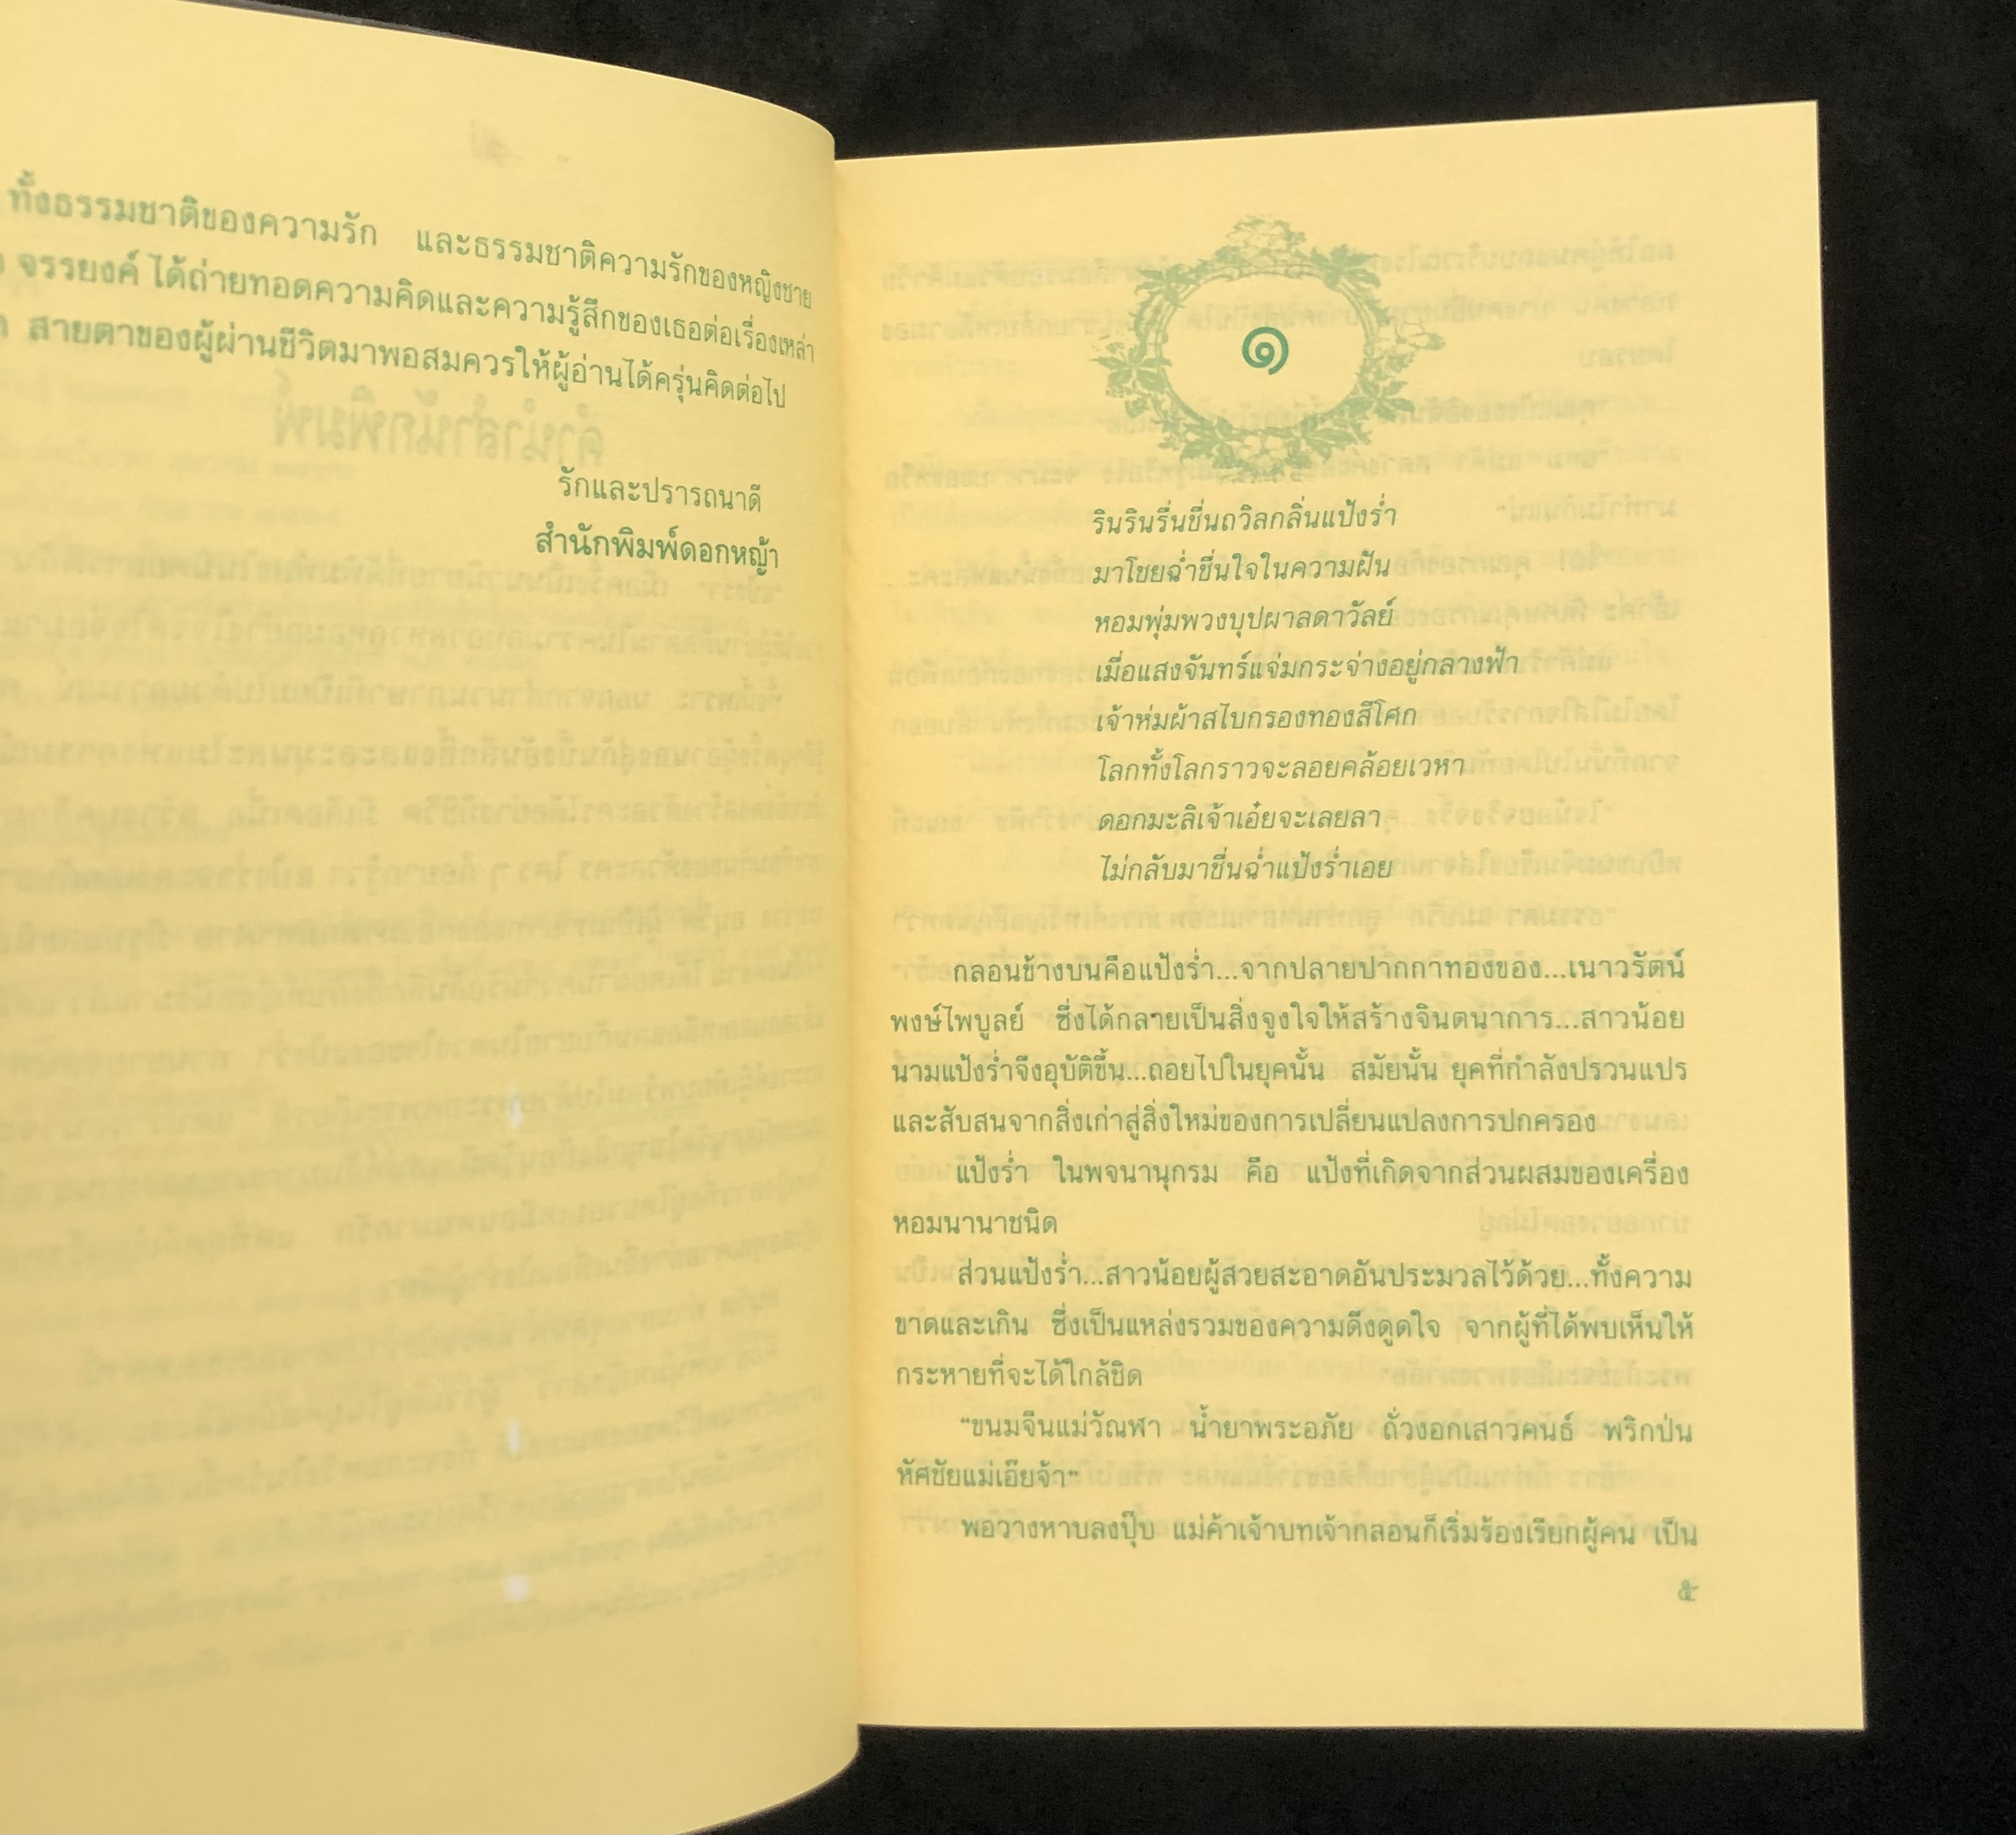 ทั้งธรรมชาติของความรัก และธรรมชาติความรักของหญิงชาย
จรรยงค์ ได้ถ่ายทอดความคิดและความรู้สึกของเธอต่อเรื่องเหล่า
สายตาของผู้ผ่านชีวิตมาพอสมควรให้ผู้อ่านได้ครุ่นคิดต่อไป
รักและปรารถนาดี
สำนักพิมพ์ดอกหญ้า
๑
รินรินรื่นชื่นถวิลกลิ่นแป้งร่ำ
มาโชยฉ่ำชื่นใจในความฝัน
หอมพุ่มพวงบุปผาลดาวัลย์
เมื่อแสงจันทร์แจ่มกระจ่างอยู่กลางฟ้า
เจ้าห่มผ้าสไบกรองทองสีโศก
โลกทั้งโลกราวจะลอยคล้อยเวหา
ดอกมะลิเจ้าเอ๋ยจะเลยลา
ไม่กลับมาชื่นฉ่ำแป้งร่ำเอย
กลอนข้างบนคือแป้งร่ำ...จากปลายปากกาทองของ...เนาวรัตน์
พงษ์ไพบูลย์ ซึ่งได้กลายเป็นสิ่งจูงใจให้สร้างจินตนาการ...สาวน้อย
นามแป้งร่ำจึงอุบัติขึ้น...ถอยไปในยุคนั้น สมัยนั้น ยุคที่กำลังปรวนแปร
และสับสนจากสิ่งเก่าสู่สิ่งใหม่ของการเปลี่ยนแปลงการปกครอง
แป้งร่ำ ในพจนานุกรม คือ แป้งที่เกิดจากส่วนผสมของเครื่อง
หอมนานาชนิด
ส่วนแป้งร่ำ...สาวน้อยผู้สวยสะอาดอันประมวลไว้ด้วย...ทั้งความ
ขาดและเกิน ซึ่งเป็นแหล่งรวมของความดึงดูดใจ จากผู้ที่ได้พบเห็นให้
กระหายที่จะได้ใกล้ชิด
"ขนมจีนแม่วัณฬา น้ำยาพระอภัย ถั่วงอกเสาวคนธ์ พริกป่น
หัศชัยแม่เอ๊ยจ้า"
พอวางหาบลงปุ๊บ แม่ค้าเจ้าบทเจ้ากลอนก็เริ่มร้องเรียกผู้คน เป็น
๕